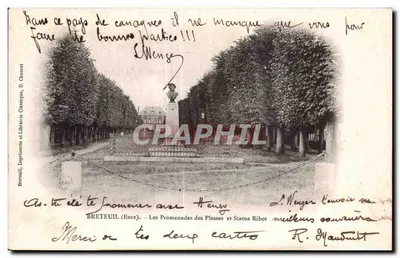 Dans ce pays de canagnes il ne manque que vous pour
faire de bonnes parties !!!
Breteuil, Imprimerie et Librairie Classique, D. Chennet
CPARAMA
BRETEUIL (Eure). - Les Promenades des Plesses et Statue Ribot
As-tu été te promener avec Henry
envoie ses
meilleurs souvenirs
Merci des deux cartes
R. Mauduit